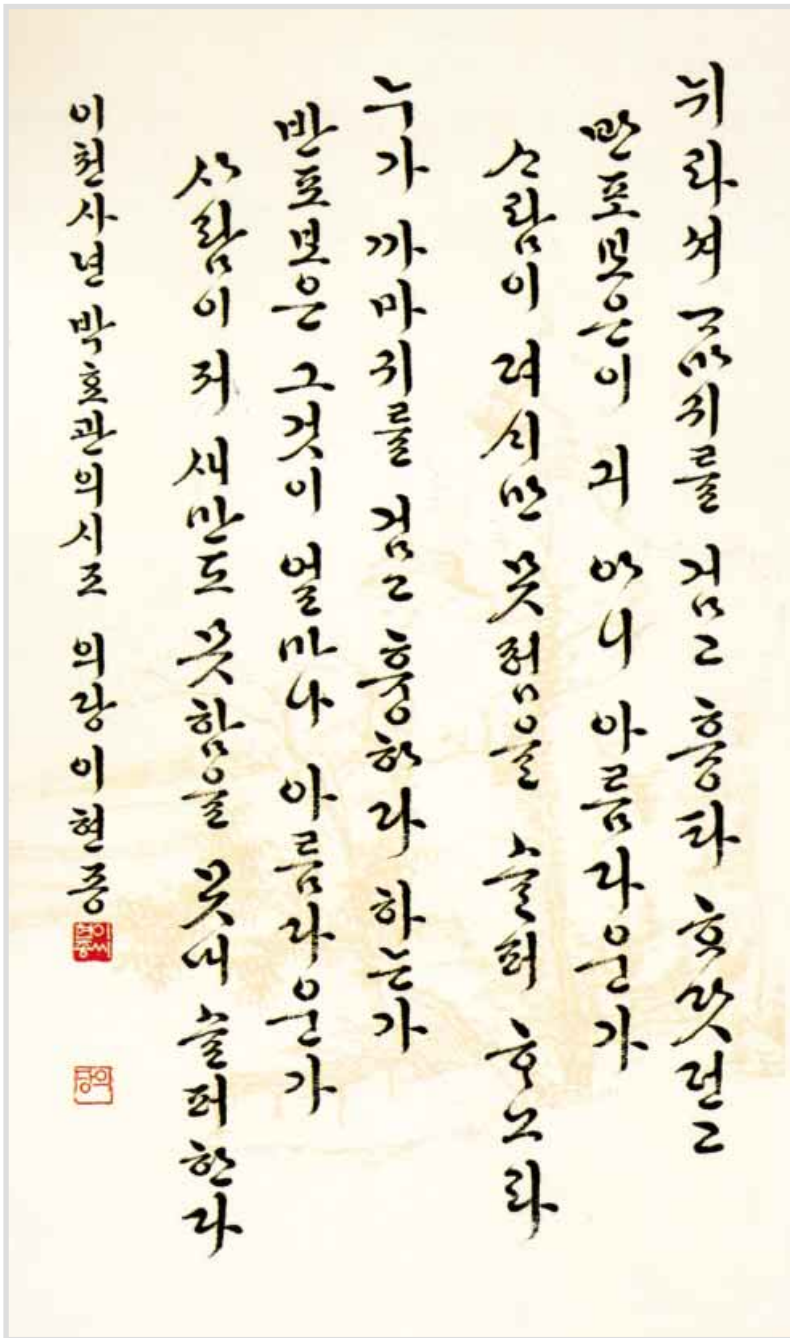 뉘라셔 ᄀᆞ마귀를 검고 흉타 ᄒᆞ랏던고
반포보은이 긔 아니 아름다운가
ᄉᆞ람이 져 시만 못험을 슬퍼 ᄒᆞ노라
누가 까마귀를 검고 흉하다 하는가
반포보은 그것이 얼마나 아름다운가
사람이 저 새만도 못함을 못내 슬퍼한다
이천사년 박효관의시조 의랑 이현종
이씨현종
의랑